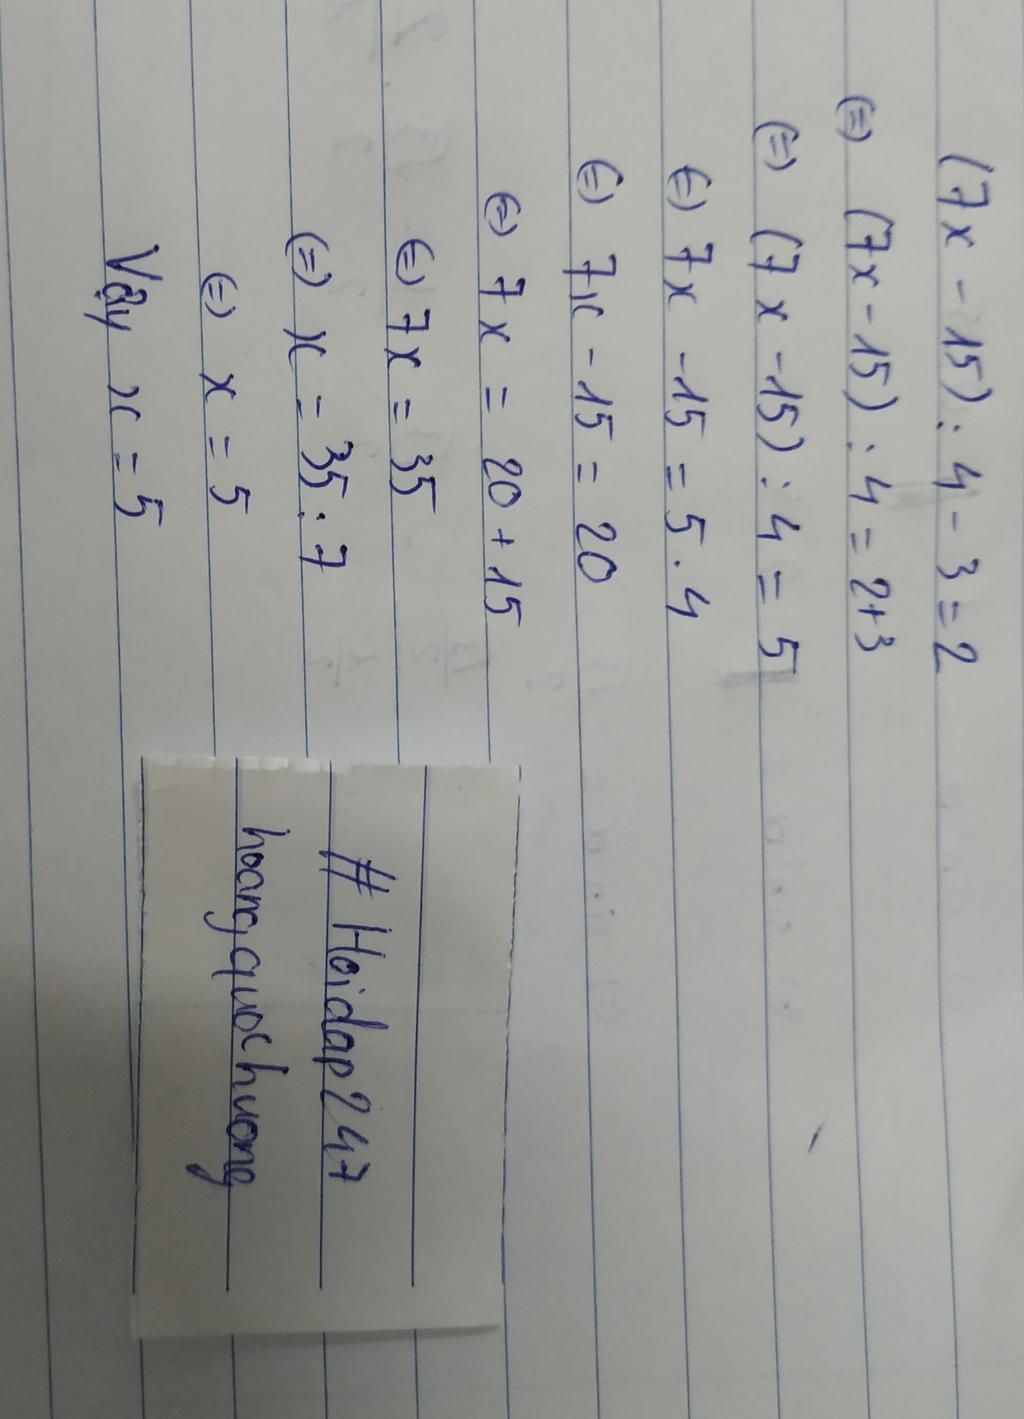 (7x - 15) : 4 - 3 = 2
(=) (7x - 15) : 4 = 2+3
(=) (7x - 15) : 4 = 5
(=) 7x - 15 = 5 . 4
(=) 7x - 15 = 20
(=) 7x = 20 + 15
(=) 7x = 35
(=) x = 35 : 7
(=) x = 5
Vậy x = 5
# Hoidap247
hoangquochuong